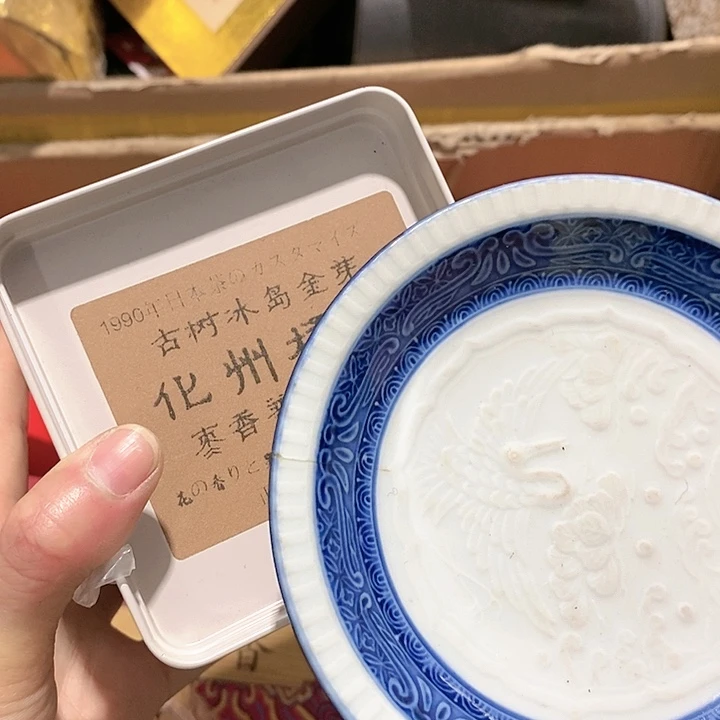 1990年日本茶のカスタマイズ
古树冰岛金芽
化州
枣香
花の香り